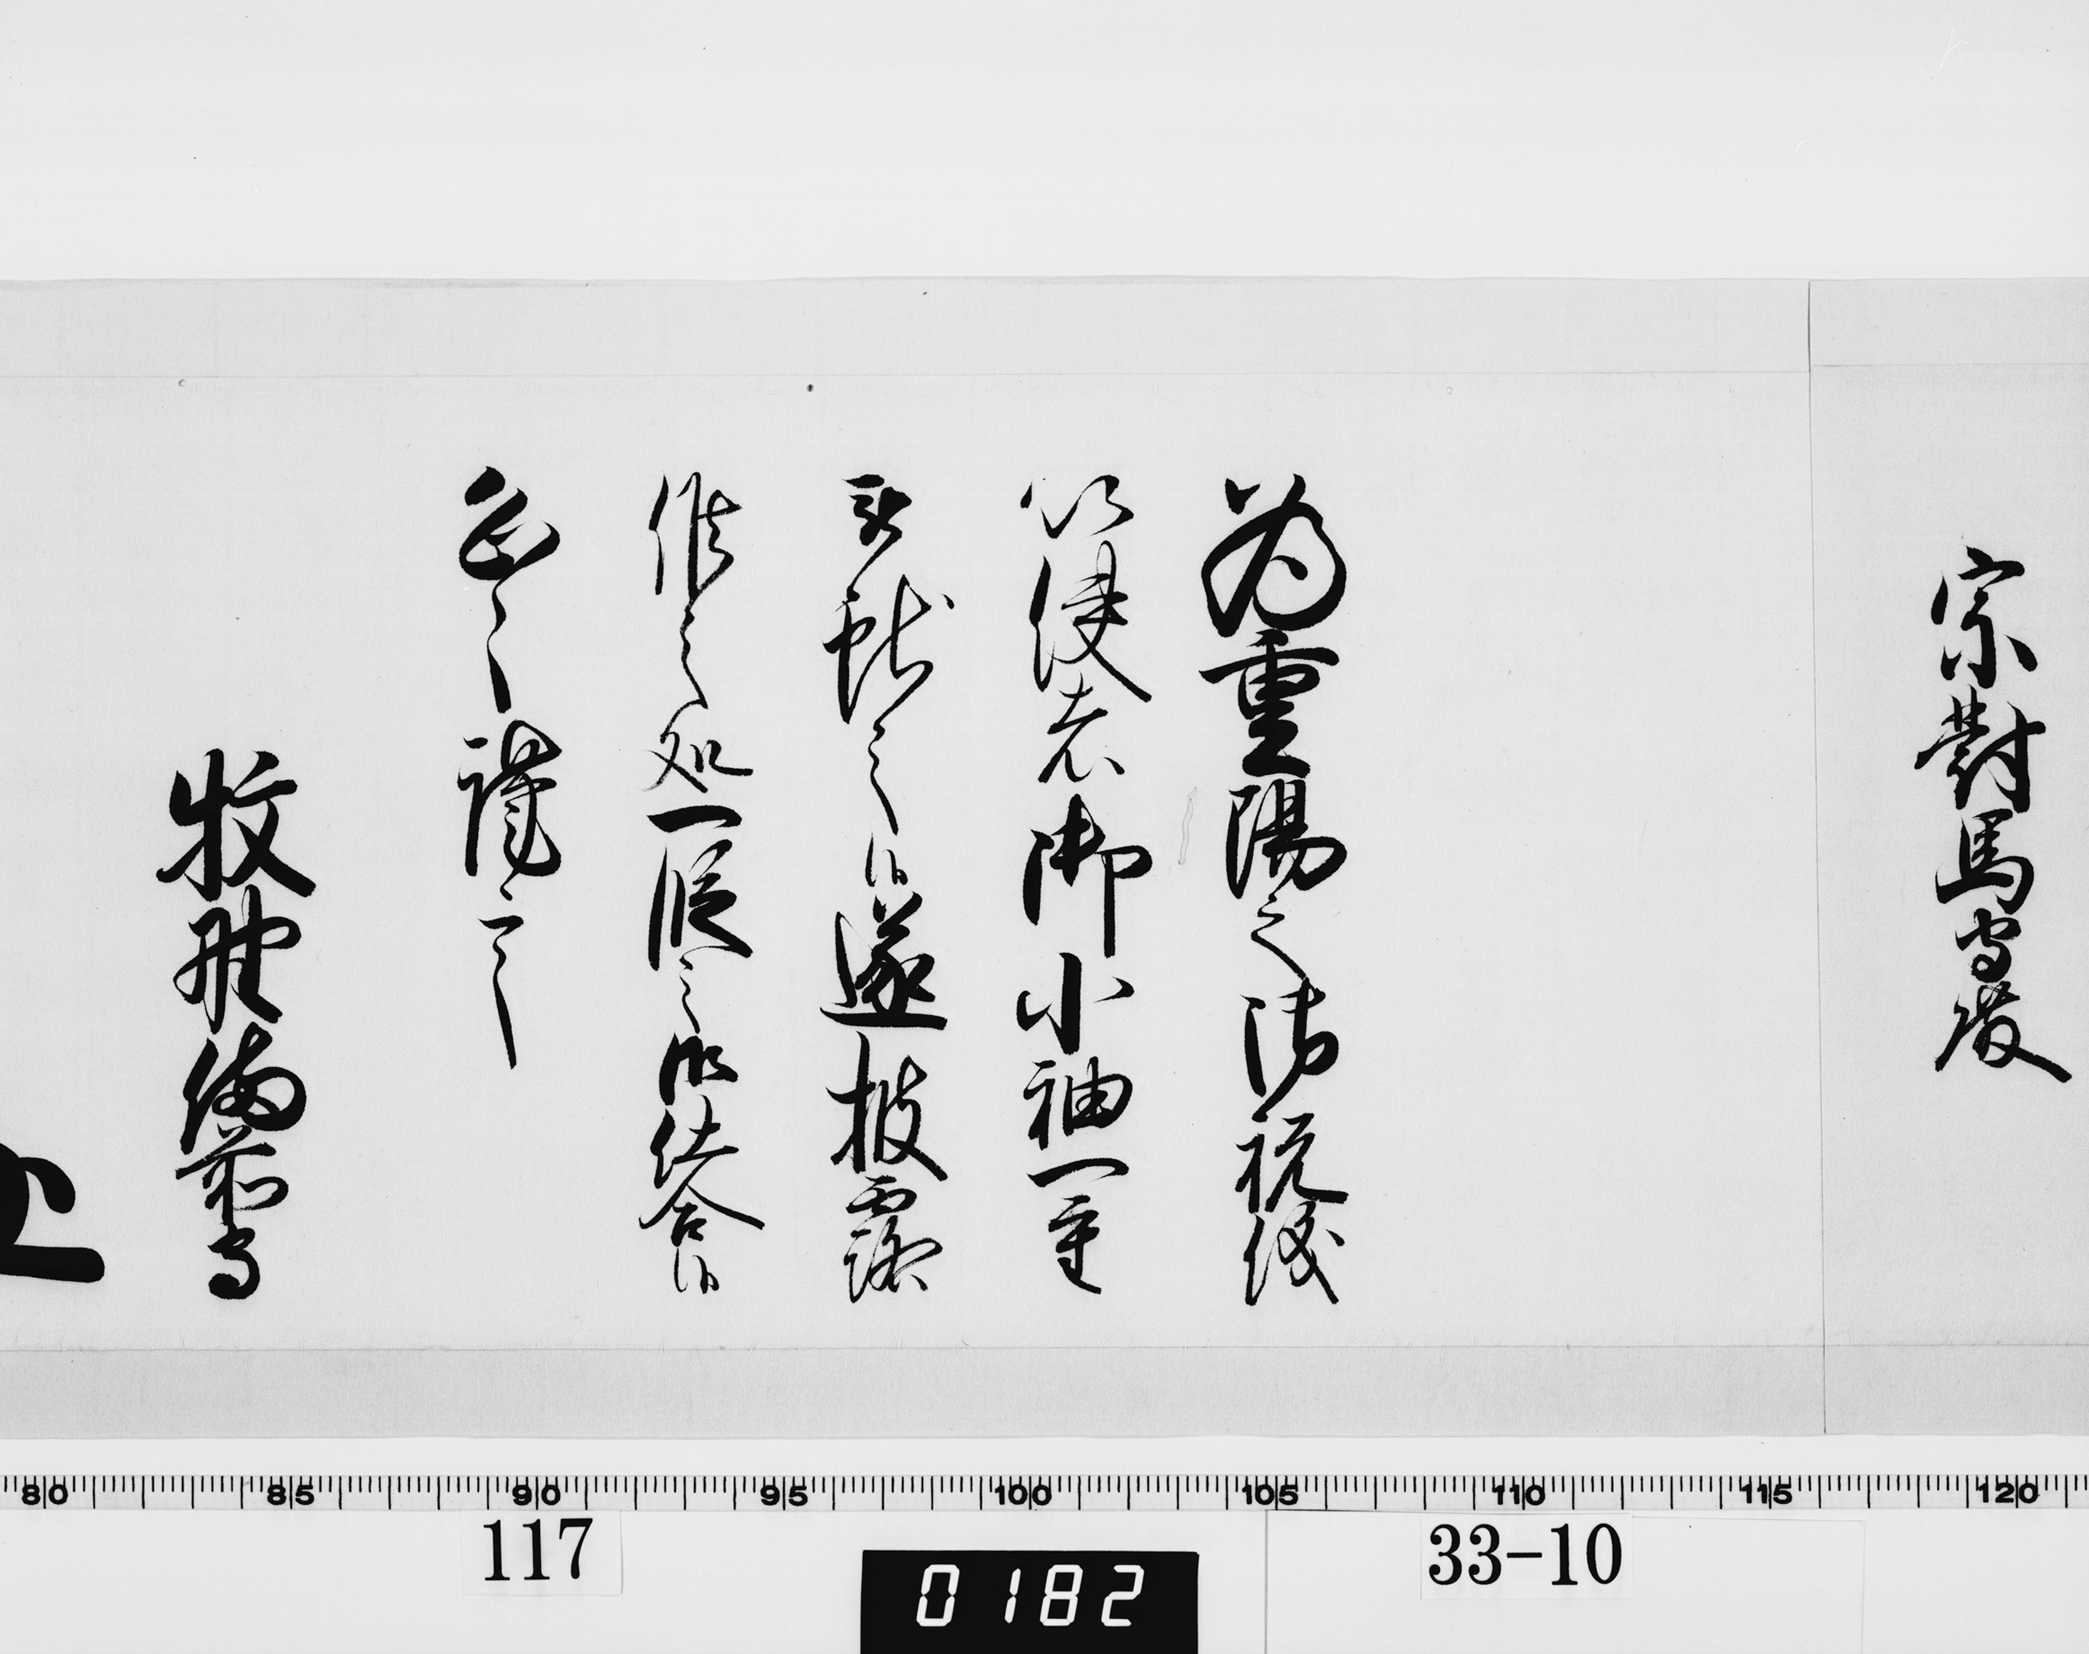 宗對馬守殿
為重陽之御祝儀
以使者御小袖一重
被献之候遂披露
候之処一段之御仕合候
恐々謹言
牧野備前守
80 85 90 95 100 105 110 115 120
117 33-10
0182